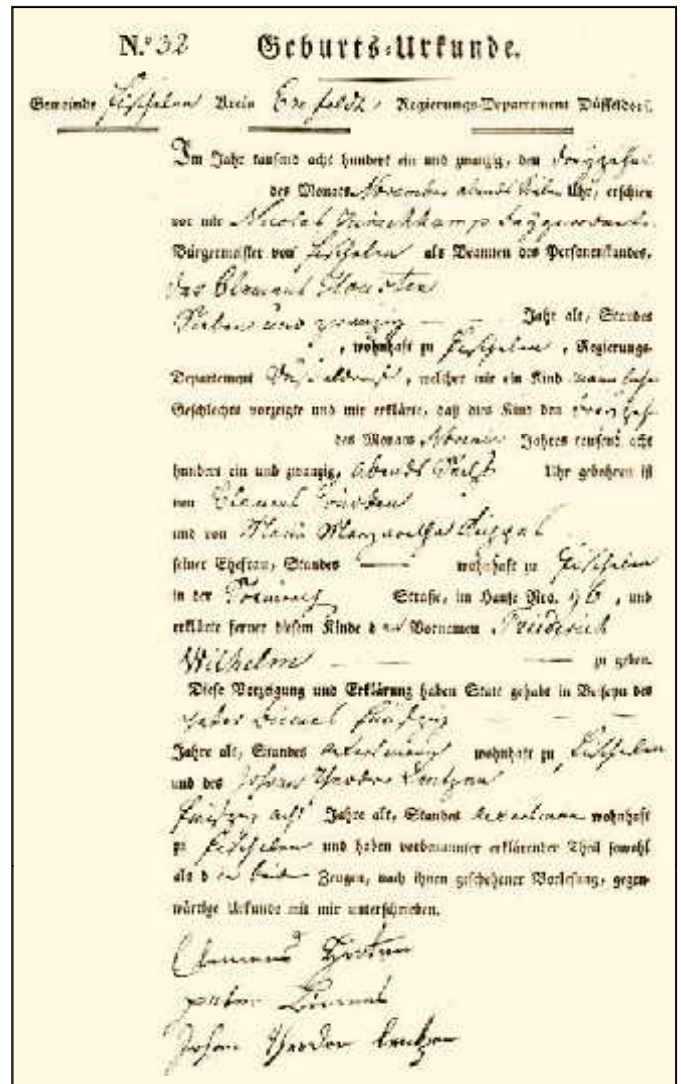 N.º 32 Geburts-Urkunde.
Gemeinde Fischelen Kreis Crefeldt, Regierungs-Departement Düsseldorf.
Im Jahr tausend acht hundert ein und zwanzig, den
des Monats November abends Uhr, erschien
vor mir Nicolas
Bürgermeister von Fischelen als Beamten des Personenstandes,
der Clemens
Sieben und zwanzig — — Jahr alt, Standes
, wohnhaft zu Fischelen, Regierungs-
Departement Düsseldorf, welcher mir ein Kind
Geschlechts vorzeigte und mir erklärte, daß dies Kind den
des Monats Jahres tausend acht
hundert ein und zwanzig, abends Uhr gebohren ist
von Clemens
und von Maria Margaretha
seiner Ehefrau, Standes — wohnhaft zu Fischelen
in der Straße, im Hause Nro. 96, und
erklärte ferner diesem Kinde den Vornamen Friederich
Wilhelm — — — zu geben.
Diese Vorzeigung und Erklärung haben Statt gehabt in Beiseyn des
Peter fünfzig
Jahre alt, Standes Ackersmann wohnhaft zu Fischelen
und des Johann Theodor
fünfzig acht Jahre alt, Standes Ackersmann wohnhaft
zu Fischelen und haben vorbenannter erklärender Theil sowohl
als die beiden Zeugen, nach ihnen geschehener Vorlesung, gegen-
wärtige Urkunde mit mir unterschrieben.
Clemens
peter
Johann Theodor